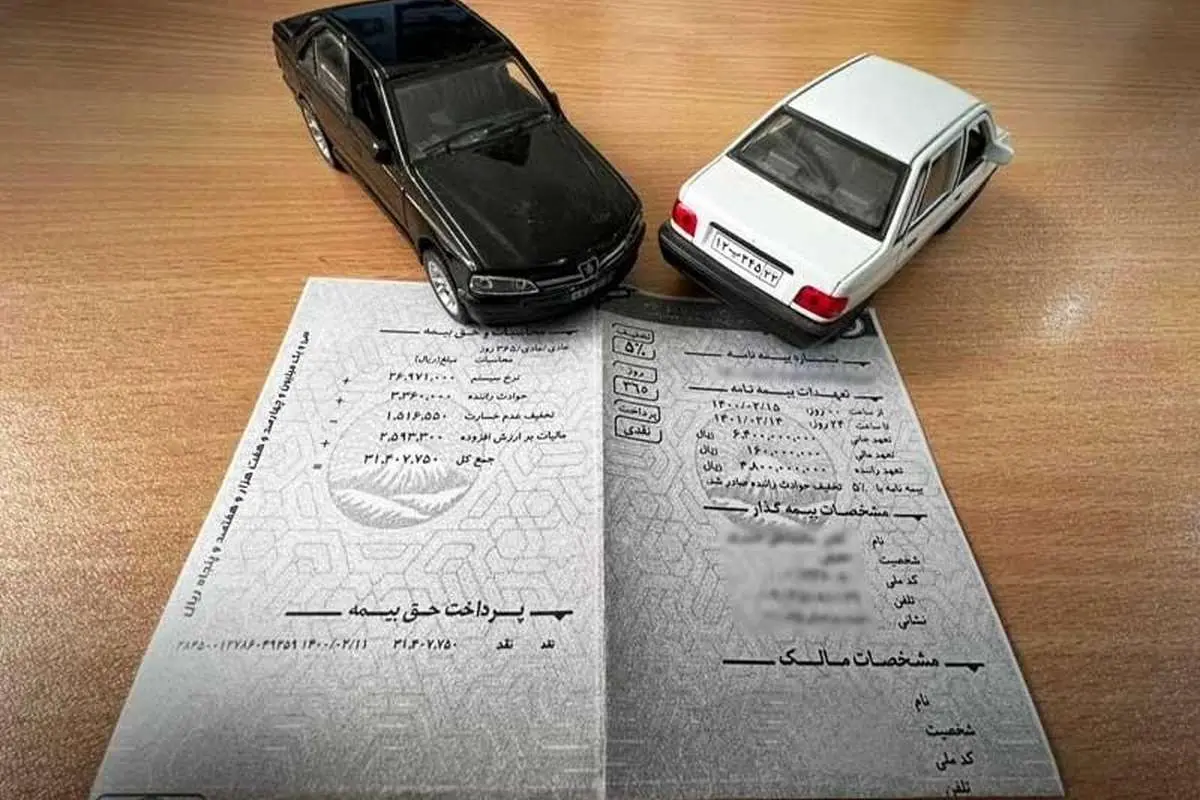 ۱۲ب۳۴۵/۲۲
تخفیف
۵%
روز
۳۶۵
پرداخت
نقدی
شماره بیمه نامه
تعهدات بیمه نامه
از ساعت ۰۰ روز: ۱۴۰۰/۰۲/۱۵
تا ساعت ۲۴ روز: ۱۴۰۱/۰۲/۱۴
تعهد جانی ۶,۴۰۰,۰۰۰,۰۰۰ ریال
تعهد مالی ۱۶۰,۰۰۰,۰۰۰ ریال
تعهد راننده ۴,۸۰۰,۰۰۰,۰۰۰ ریال
بیمه نامه با ۵% تخفیف حوادث راننده صادر شد.
مشخصات بیمه گذار
نام
شخصیت
کد ملی
تلفن
نشانی
مشخصات مالک
نام
شخصیت
کد ملی
تلفن
محاسبات و حق بیمه
عادی/عادی/۳۶۵ روز
محاسبات مبلغ(ریال)
نرخ سیستم ۲۶,۹۷۱,۰۰۰ +
حوادث راننده ۳,۳۶۰,۰۰۰ +
تخفیف عدم خسارت ۱,۵۱۶,۵۵۰ -
مالیات بر ارزش افزوده ۲,۵۹۳,۳۰۰ +
جمع کل ۳۱,۴۰۷,۷۵۰ =
سی و یک میلیون و چهارصد و هفت هزار و هفتصد و پنجاه ریال
پرداخت حق بیمه
نقد نقد ۳۱,۴۰۷,۷۵۰ ۱۴۰۰/۰۲/۱۱